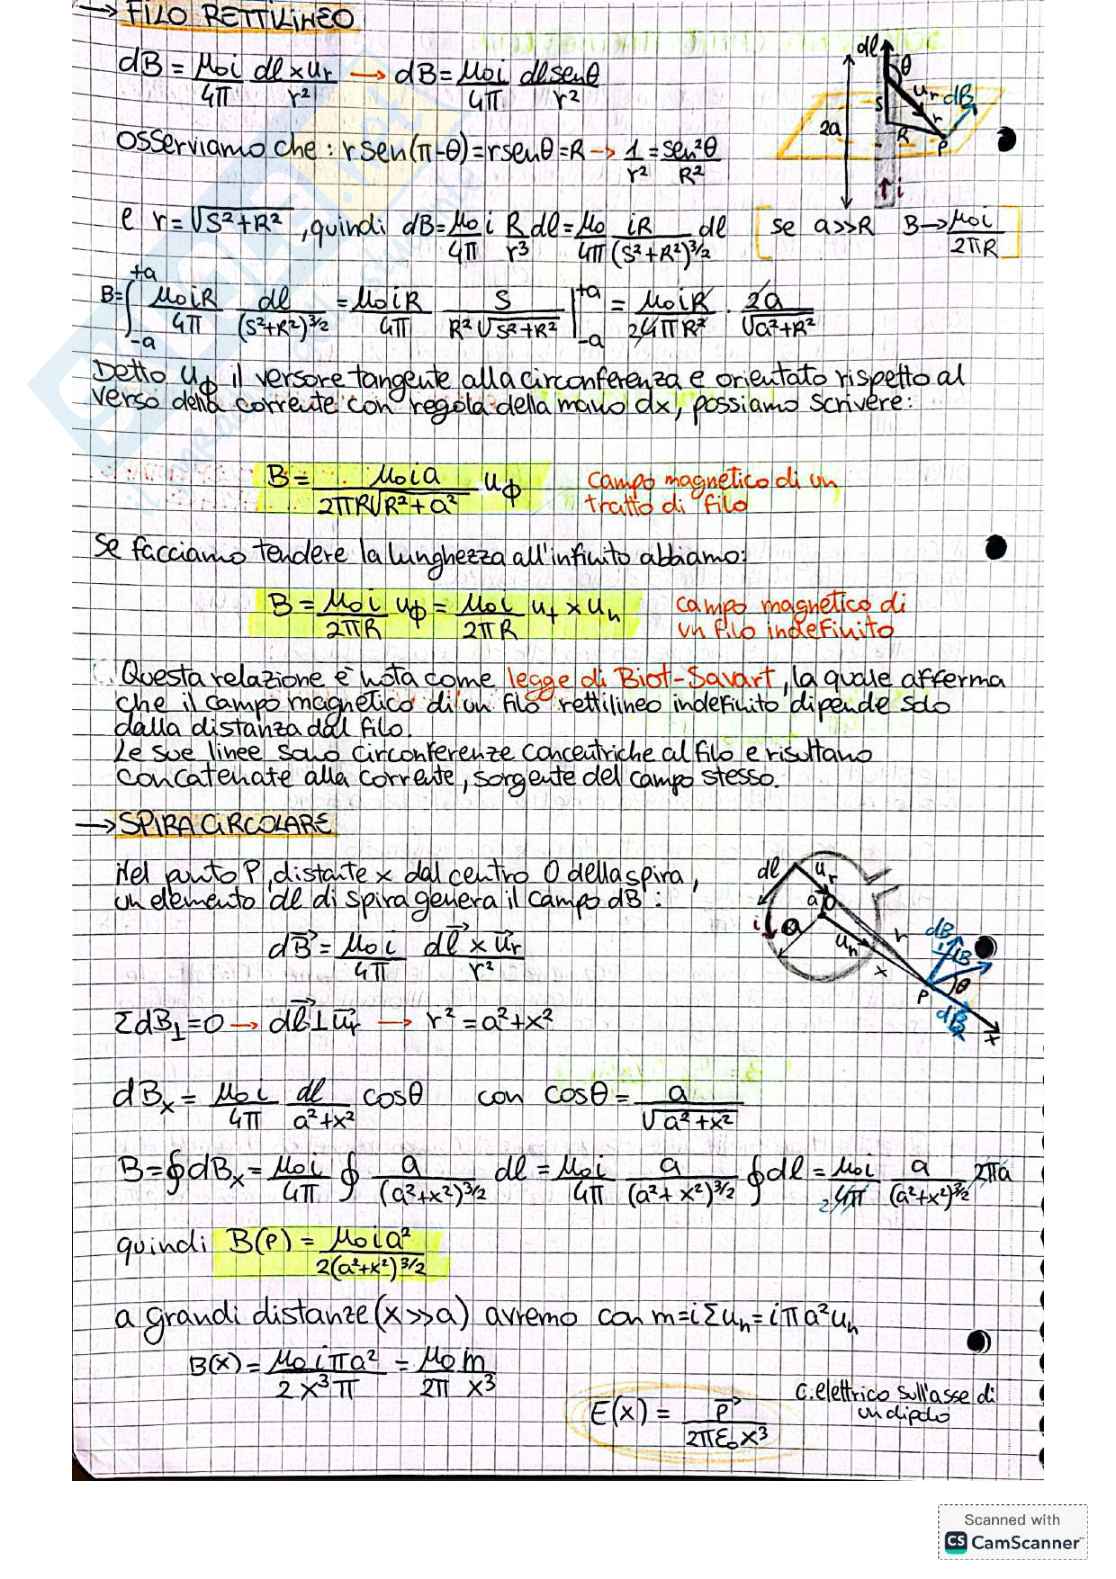 → FILO RETTILINEO
dB = μ₀i/4π dl×uᵣ/r² → dB = μ₀i/4π dl senθ/r²
Osserviamo che: r sen(π-θ) = r senθ = R → 1/r² = sen²θ/R²
e r = √(S²+R²), quindi dB = μ₀/4π i R/r³ dl = μ₀/4π iR/(S²+R²)^3/2 dl [se a>>R B→ μ₀i/2πR]
B = ∫₋ₐ⁺ᵃ μ₀iR/4π dl/(S²+R²)^3/2 = μ₀iR/4π S/(R²√(S²+R²)) |₋ₐ⁺ᵃ = μ₀iR/(2 4πR²) · 2a/√(a²+R²)
Detto uϕ il versore tangente alla circonferenza e orientato rispetto al
verso della corrente con regola della mano dx, possiamo scrivere:
B = μ₀ia/(2πR√(R²+a²)) uϕ campo magnetico di un
tratto di filo
Se facciamo tendere la lunghezza all'infinito abbiamo:
B = μ₀i/2πR uϕ = μ₀i/2πR uₜ × uₙ campo magnetico di
un filo indefinito
Questa relazione è nota come legge di Biot-Savart, la quale afferma
che il campo magnetico di un filo rettilineo indefinito dipende solo
dalla distanza dal filo.
Le sue linee sono circonferenze concentriche al filo e risultano
concatenate alla corrente, sorgente del campo stesso.
→ SPIRA CIRCOLARE
Nel punto P, distante x dal centro O della spira,
un elemento dl di spira genera il campo dB:
dB⃗ = μ₀i/4π dl⃗ × u⃗ᵣ/r²
ΣdB⊥ = 0 → dl⃗ ⊥ u⃗ᵣ → r² = a²+x²
dBₓ = μ₀i/4π dl/(a²+x²) cosθ con cosθ = a/√(a²+x²)
B = ∮dBₓ = μ₀i/4π ∮ a/(a²+x²)^3/2 dl = μ₀i/4π a/(a²+x²)^3/2 ∮dl = μ₀i/(2 4π) a/(a²+x²)^3/2 2πa
quindi B(P) = μ₀ia²/2(a²+x²)^3/2
a grandi distanze (x>>a) avremo con m = iΣuₙ = iπa²uₙ
B(x) = μ₀iπa²/2x³π = μ₀/2π m/x³
E(x) = p⃗/2πε₀x³ c. elettrico sull'asse di
un dipolo
dl
θ
uᵣ
dB
S
r
2a
R
P
i
dl
uᵣ
a
O
i
a
uₙ
r
x
dB⊥
dB
θ
P
dBₓ
x
Scanned with
CS CamScanner